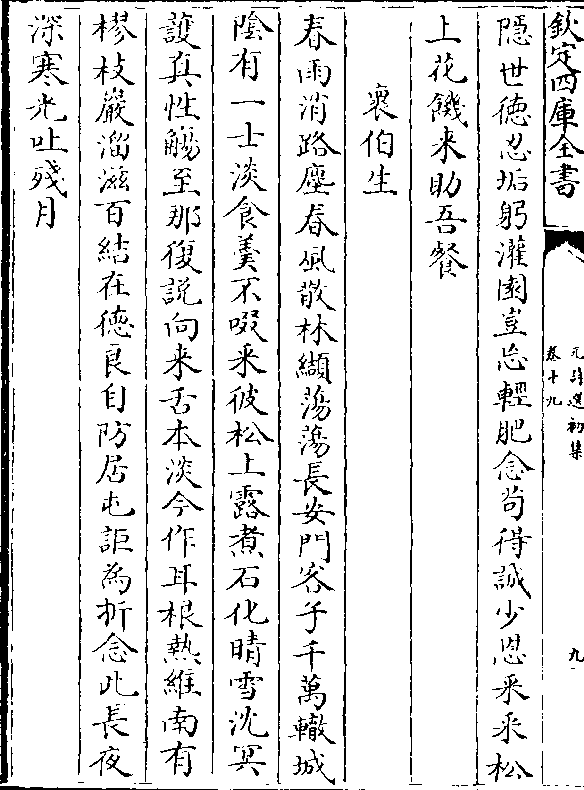 欽定四庫全書
元詩選初集
卷十九
九
隱世徳忍垢躬灌園豈忘輕肥念茍得誠少恩采采松
上花饑来助吾餐
袁伯生
春雨消路塵春風散林纈蕩蕩長安門客子千萬轍城
陰有一士淡食羮不啜采彼松上露煮石化晴雪沈冥
護真性觴至那復説向来舌本淡今作耳根熱維南有
樛枝巖溜滋百結在徳良自防居屯詎為折念此長夜
深寒光吐殘月